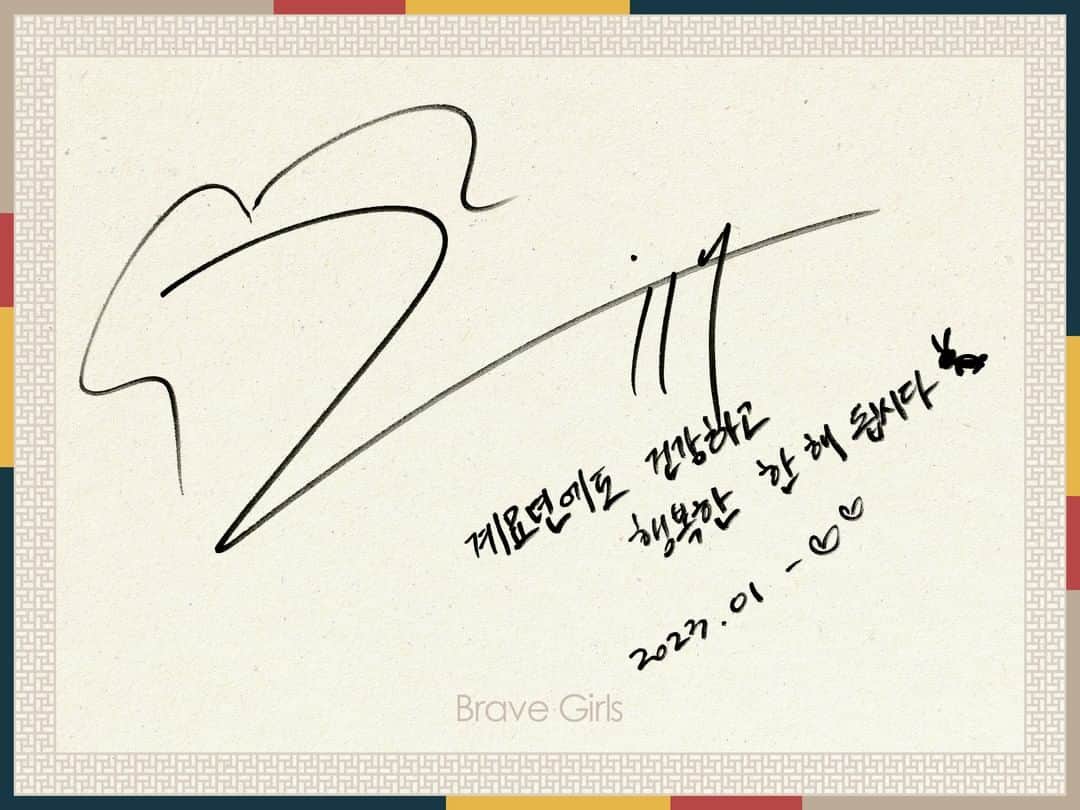 계묘년에도 건강하고
행복한 한 해 됩시다
2023.01 -♡♡
Brave Girls